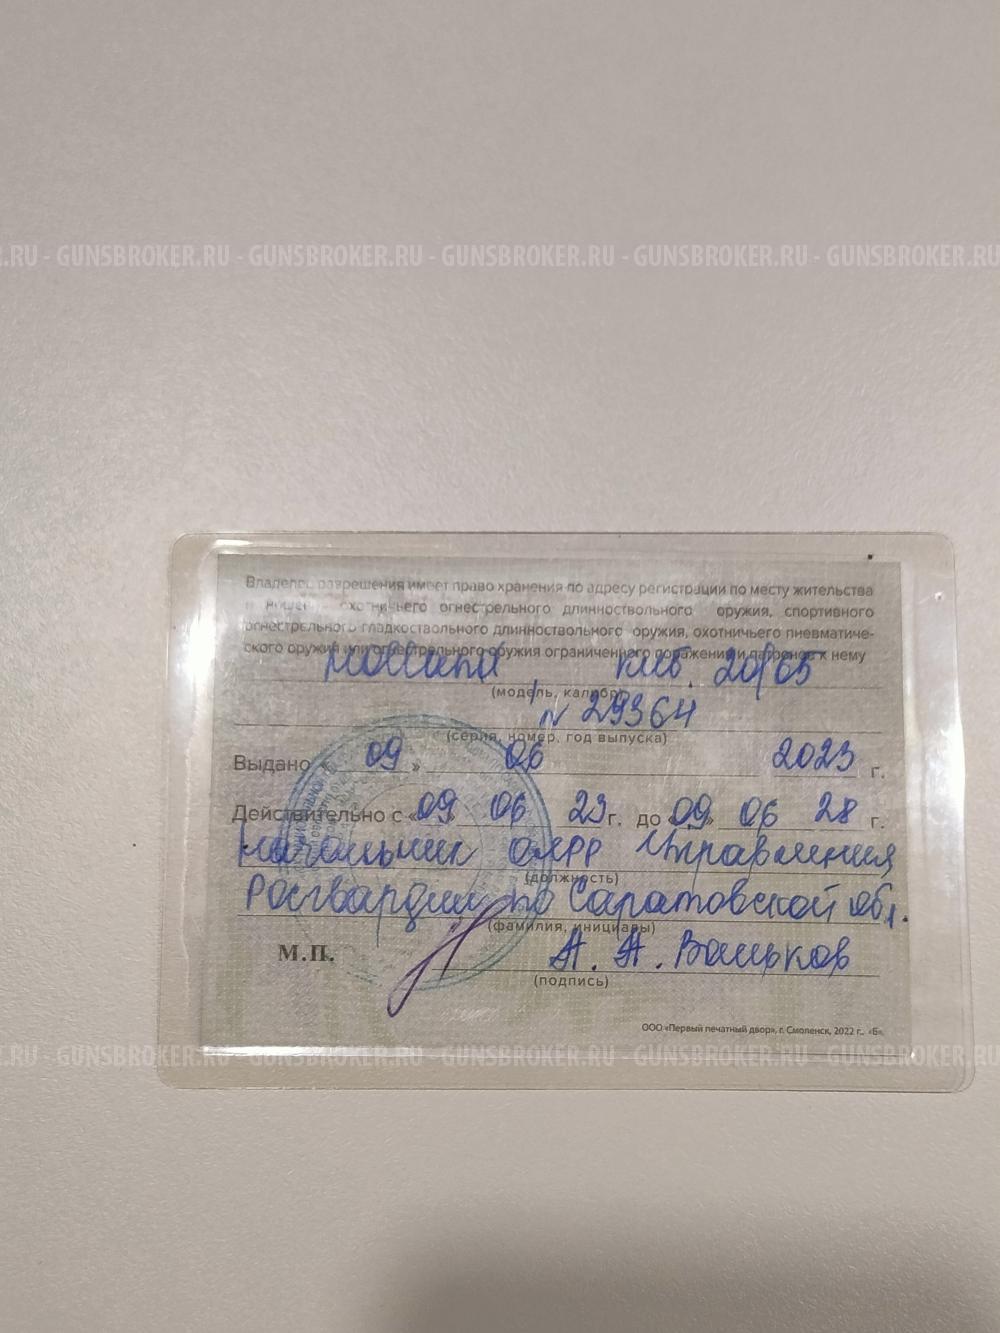 .RU - GUNSBROKER.RU - GUNSBROKER.RU - GUNSBROKER.RU - GUNSBROKER.RU - GUNSBROKER.RU
Владелец разрешения имеет право хранения по адресу регистрации по месту жительства
и ношения охотничьего огнестрельного длинноствольного оружия, спортивного
огнестрельного гладкоствольного длинноствольного оружия, охотничьего пневматиче-
ского оружия или огнестрельного оружия ограниченного поражения и патронов к нему
калиб. 20/65
(модель, калибр)
N 29364
(серия, номер, год выпуска)
Выдано « 09 » 06 2023 г.
Действительно с «09» 06 23 г. до «09» 06 28 г.
Начальник ОЛРР Управления
(должность)
Росгвардии по Саратовской обл.
(фамилия, инициалы)
М.П. А. А. Ваньков
(подпись)
ООО «Первый печатный двор», г. Смоленск, 2022 г., «Б».
.RU - GUNSBROKER.RU - GUNSBROKER.RU - GUNSBROKER.RU - GUNSBROKER.RU - GUNSBROKER.RU